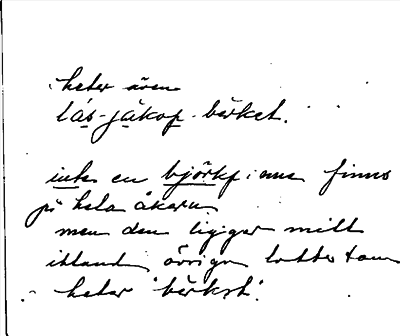 heter även
lás-jákop-bërket.
inte en björkp:nne finns
på hela åkern
men den ligger mitt
ibland övriga lotter som
heter "bërkst".